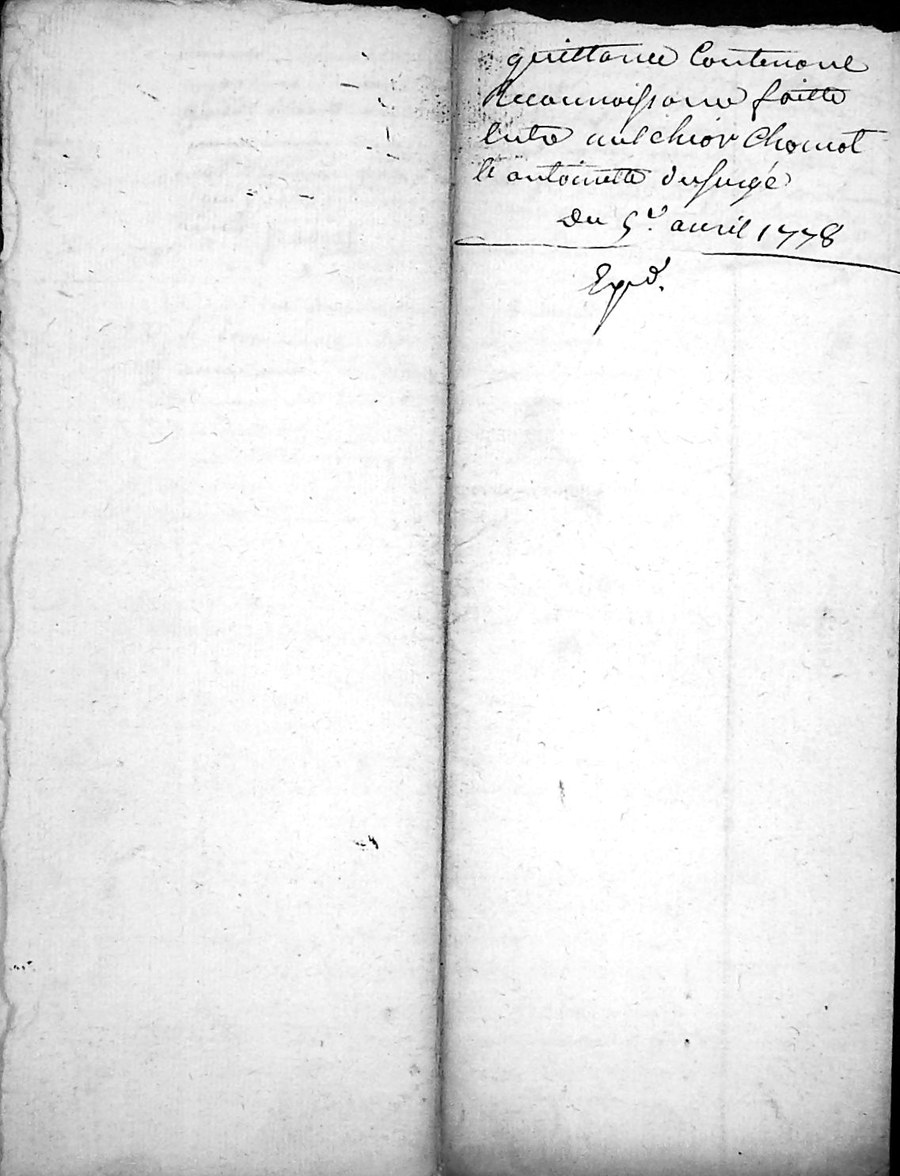 quittance Contenant
Reconnoissance faitte
Entre melchior Chomot
Et antoinette
Du 5e. avril 1778
Expd.